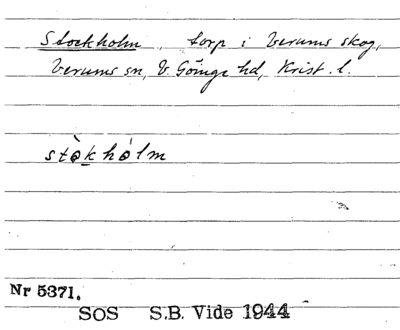 Stockholm, torp i Verums skog,
Verums sn, V. Göinge hd, Krist. l.
stòkhólm
Nr 5371.
SOS S.B. Vide 1944